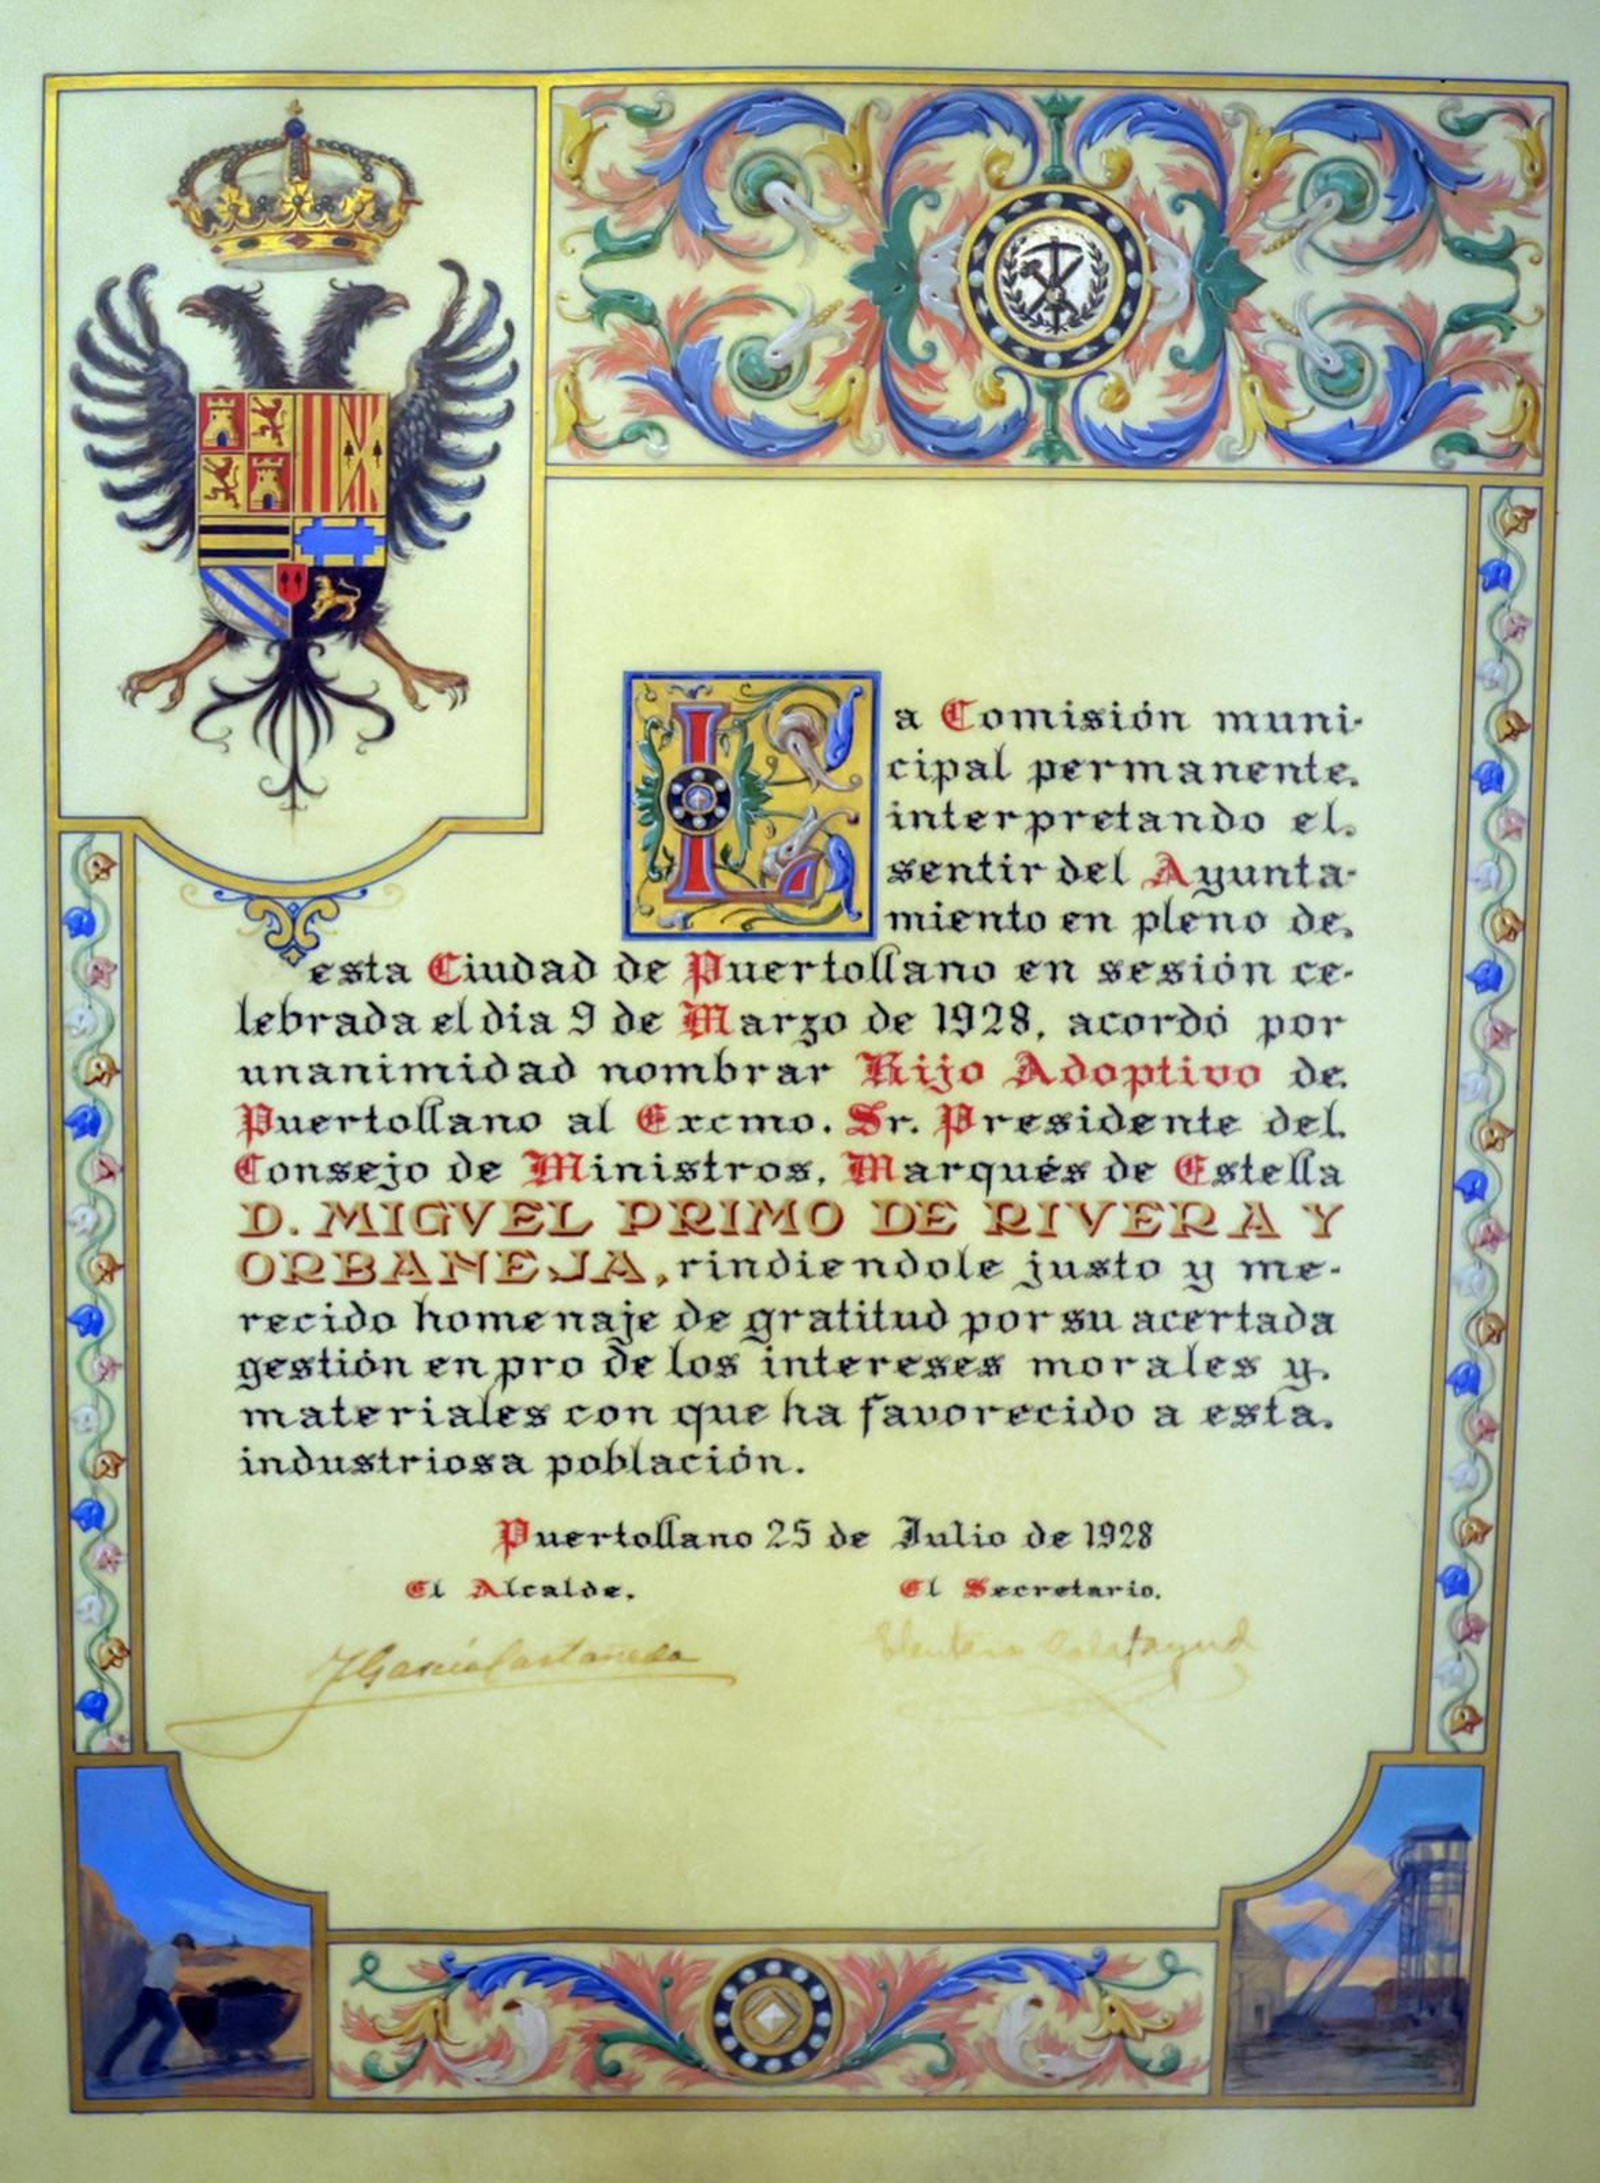 La Comisión muni-
cipal permanente.
interpretando el.
sentir del Ayunta-
miento en pleno de.
esta Ciudad de Puertollano en sesión ce-
lebrada el dia 9 de Marzo de 1928, acordó por
unanimidad nombrar Hijo Adoptivo de.
Puertollano al Excmo. Sr. Presidente del.
Consejo de Ministros, Marqués de Estella
D. MIGVEL PRIMO DE RIVERA Y
ORBANEJA, rindiendole justo y me-
recido homenaje de gratitud por su acertada
gestión en pro de los intereses morales y.
materiales con que ha favorecido a esta.
industriosa población.
Puertollano 25 de Julio de 1928
El Alcalde. El Secretario.
J García Castañeda Calatayud